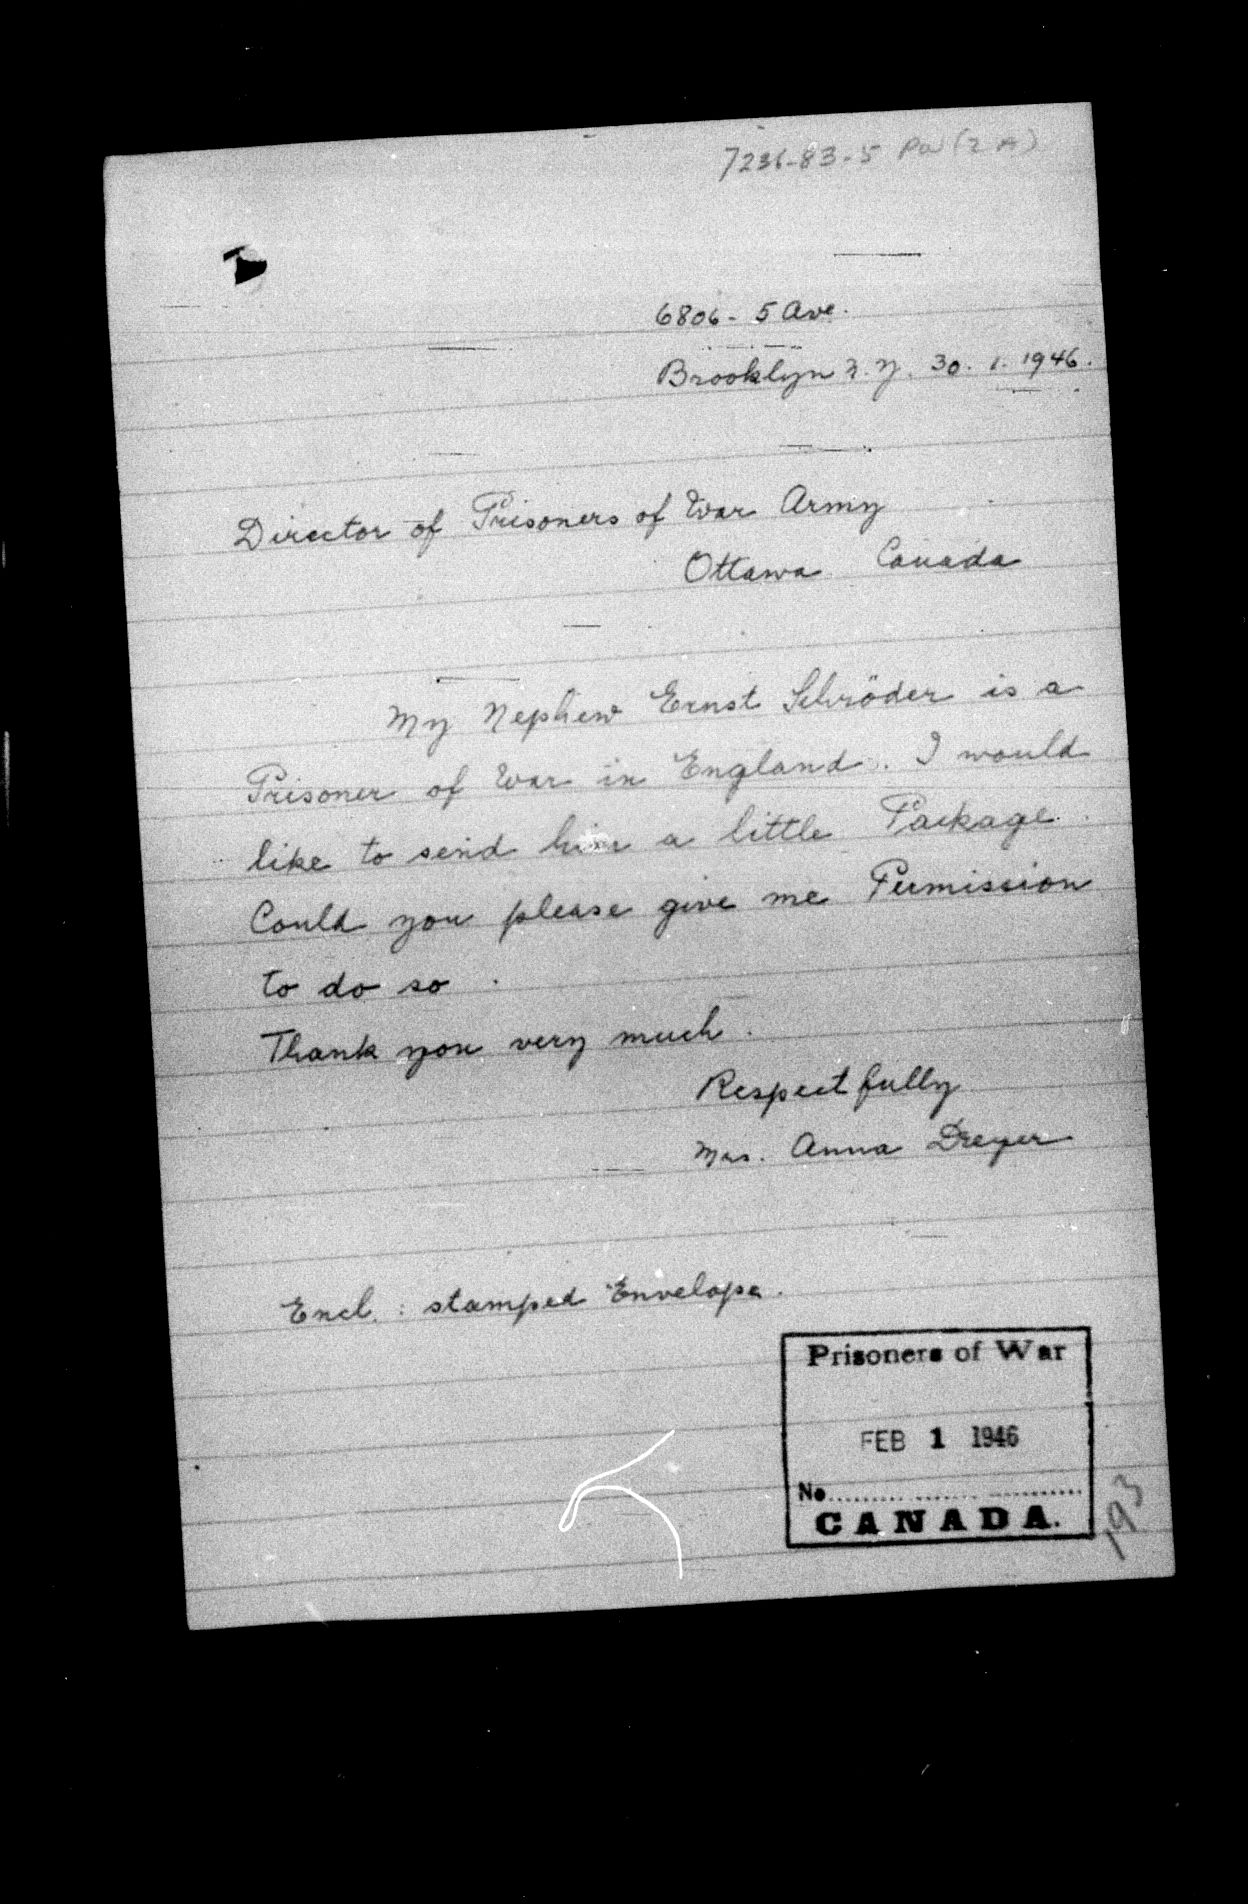 7236-83-5 POW (2 A)
6806 - 5 Ave.
Brooklyn N.Y. 30. 1. 1946.
Director of Prisoners of War Army
Ottawa Canada
My Nephew Ernst Schröder is a
Prisoner of War in England. I would
like to send him a little Package.
Could you please give me Permission
to do so.
Thank you very much.
Respectfully
Mrs. Anna Dreyer
Encl. : stamped Envelope.
Prisoners of War
FEB 1 1946
No
CANADA.
193